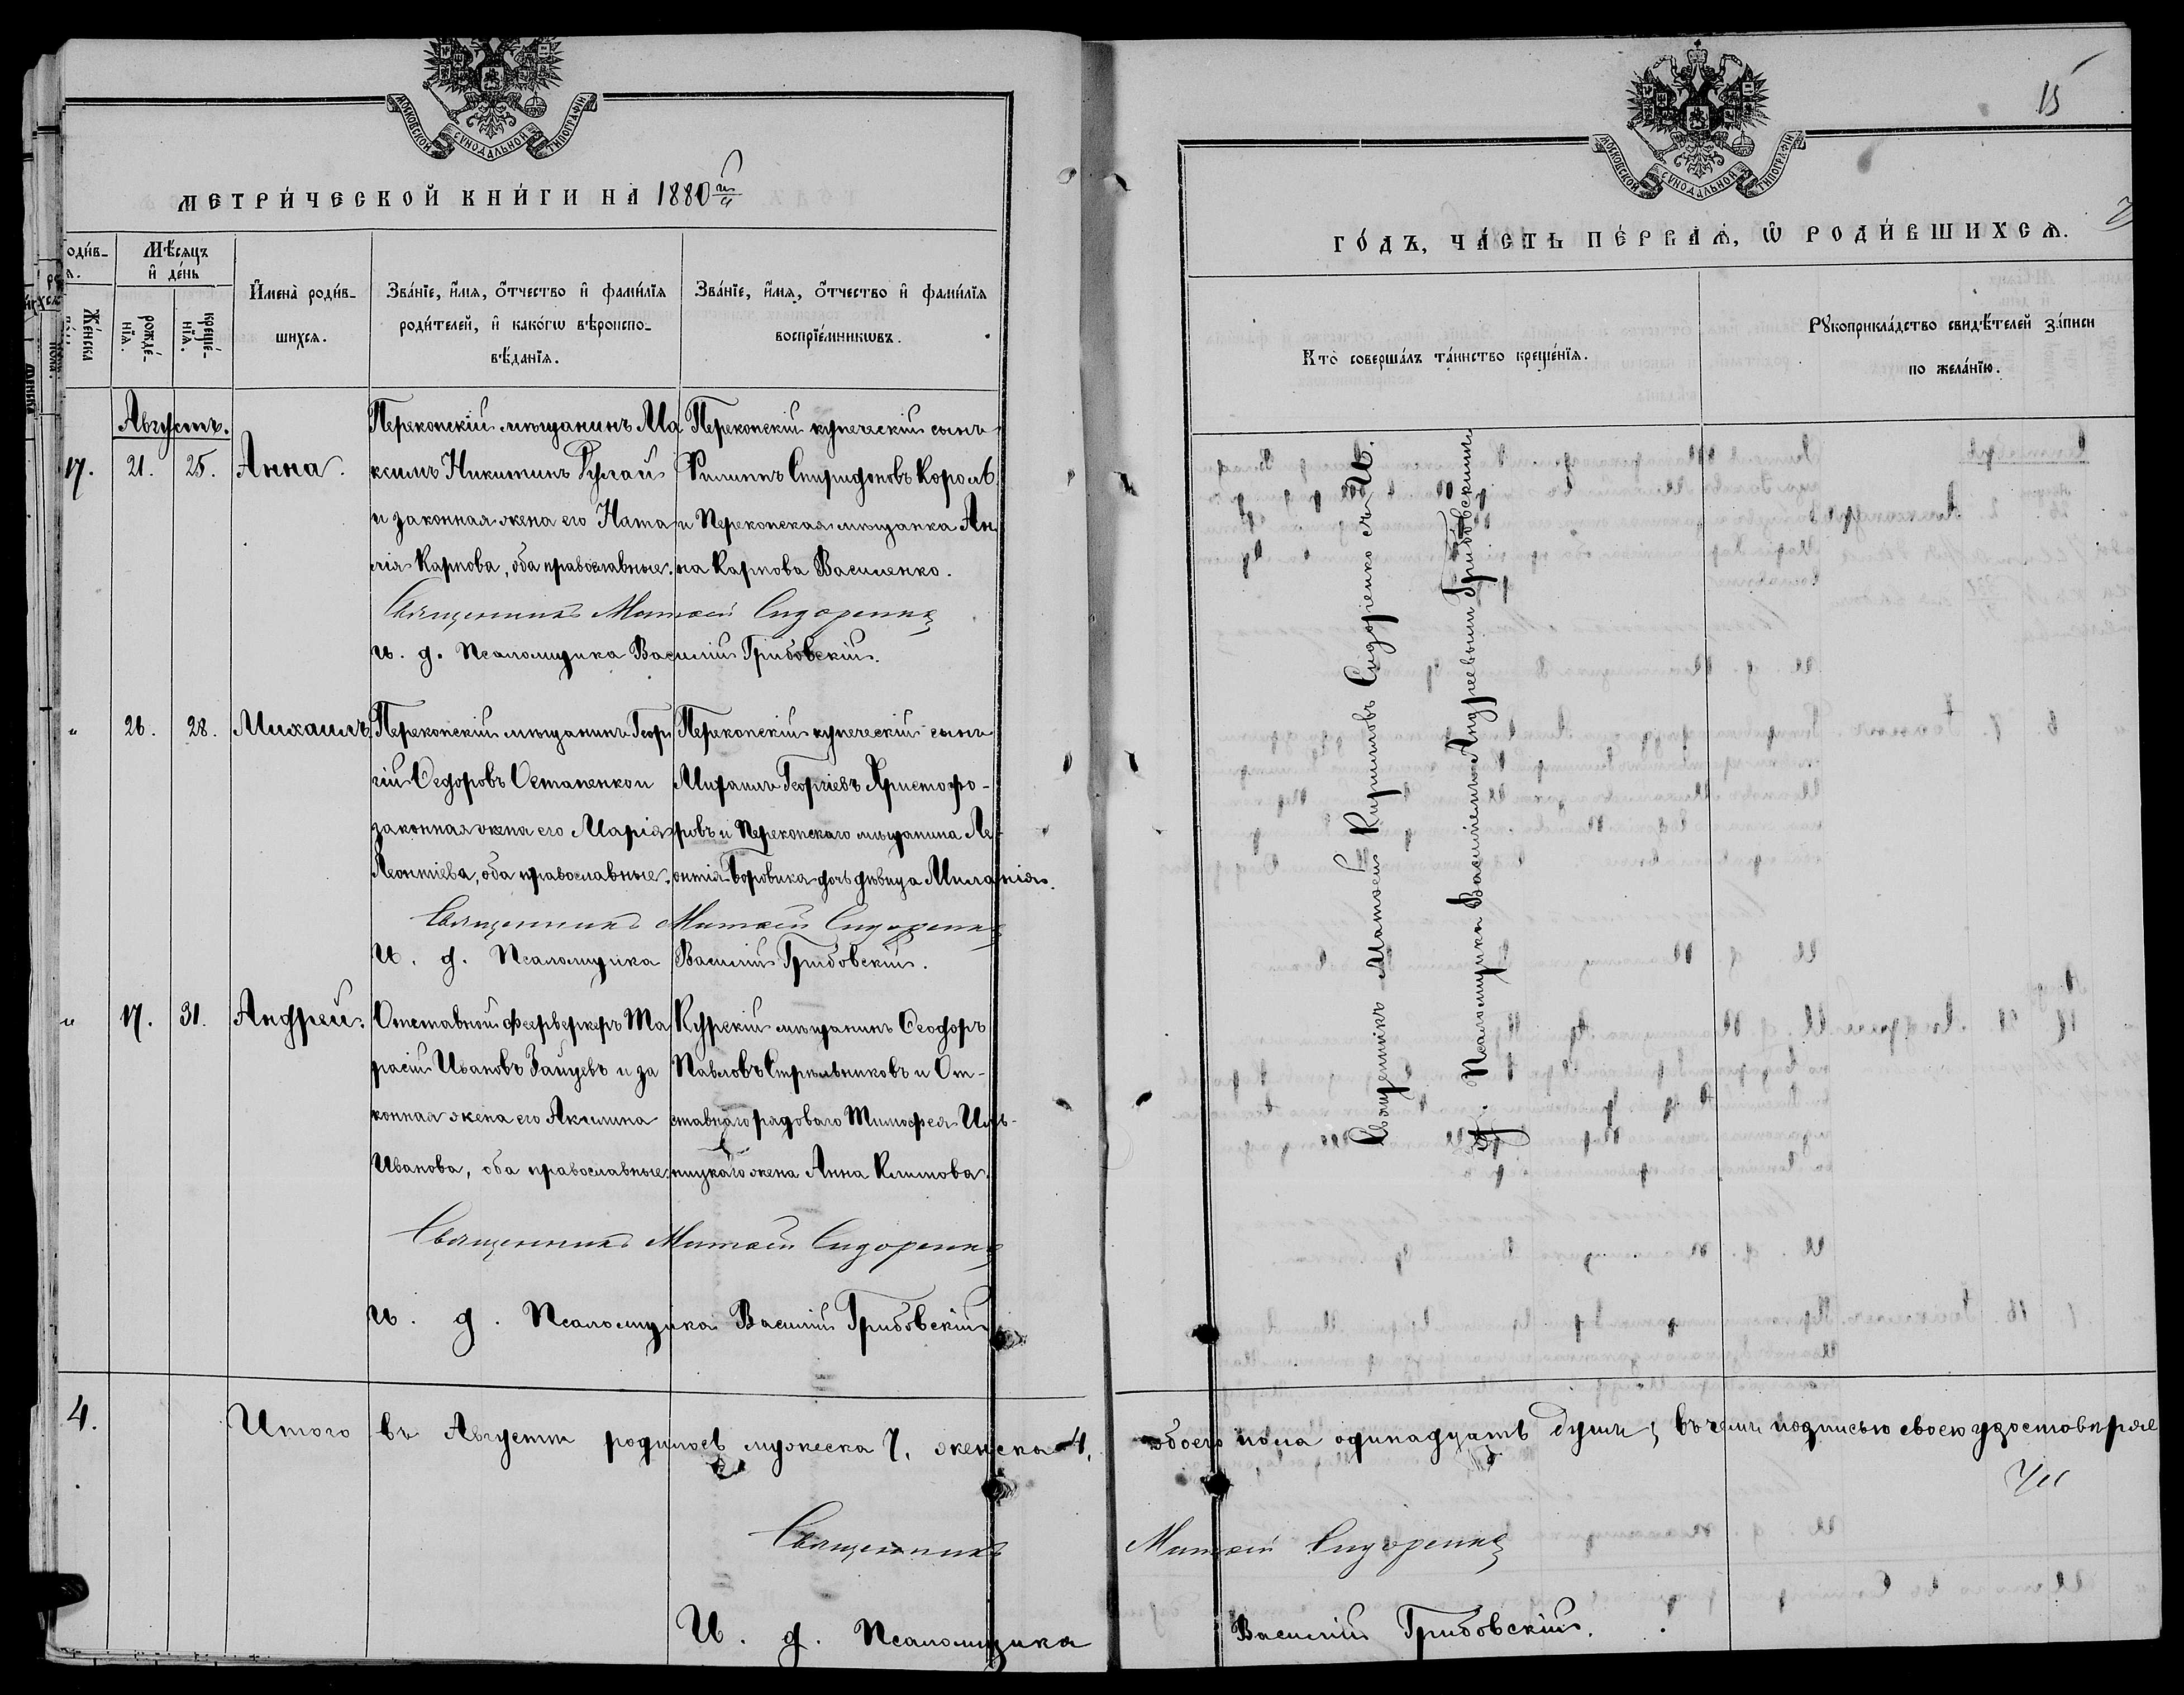 МОСКОВСКОЙ СѴНОДАЛЬНОЙ ТИПОГРАФІИ
МЕТРИ́ЧЕСКОЙ КНИ́ГИ НА 1880й
Мѣсяцъ и҆ де́нь
роди́в-
Же́нска
рожде́-нїѧ.
креще́-нїѧ.
И҆мена̀ роди́в-
шихсѧ.
Зва́нїе, и҆́мѧ, ѻ҆́тчество и҆ фами́лїѧ
роди́телей, и҆ како́гѡ вѣроиспо-
вѣ́данїѧ.
Зва́нїе, и҆́мѧ, ѻ҆́тчество и҆ фами́лїѧ
воспрїе́мникѡвъ.
Августъ.
17. 21. 25. Анна.
Перекопскій мѣщанинъ Ма
ксимъ Никитинъ Гулай
и законная жена его Ната
лія Карпова, оба православные.
Перекопскій купеческій сынъ
Филиппъ Спиридоновъ Король
и Перекопская мѣщанка Ан
на Карпова Василенко.
Священникъ Матѳей Сидоренко
И. д. Псаломщика Василій Грибовскій.
" 26. 28. Михаилъ.
Перекопскій мѣщанинъ Геор
гій Ѳедоровъ Остапенко и
законная жена его Марія
Леонтіева, оба православные.
Перекопскій купеческій сынъ
Михаилъ Георгіевъ Христофо-
ровъ и Перекопскаго мѣщанина Ле
онтія Боровика дочь дѣвица Миланія.
Священникъ Матѳей Сидоренко
И. д. Псаломщика Василій Грибовскій.
" 17. 31. Андрей.
Отставной фейерверкеръ Та
расій Ивановъ Зайцевъ и за
конная жена его Акилина
Иванова, оба православные.
Курскій мѣщанинъ Ѳеодоръ
Павловъ Стрѣльниковъ и От-
ставнаго рядоваго Тимофея Иль-
ницкаго жена Анна Климова.
Священникъ Матѳей Сидоренко
И. д. Псаломщика Василій Грибовскій
4. Итого въ Августѣ родилось мужеска 7, женска 4,
Священникъ
И. д. Псаломщика
15
МОСКОВСКОЙ СѴНОДАЛЬНОЙ ТИПОГРАФІИ
ГО́ДЪ, ЧА́СТЬ ПЕ́РВАѦ, Ѽ РОДИ́ВШИХСѦ.
Кто̀ соверша́лъ та́инство креще́нїѧ.
Рꙋкоприкла́дство свидѣ́телей за́писи
по жела́нїю.
Священникъ Матѳей Кирилловъ Сидоренко съ И.
д. Псаломщика Василіемъ Андреевымъ Грибовскимъ
обоего пола одинадцать душъ; въ чемъ подписью своею удостовѣряе
мъ
Матѳей Сидоренко
Василій Грибовскій.